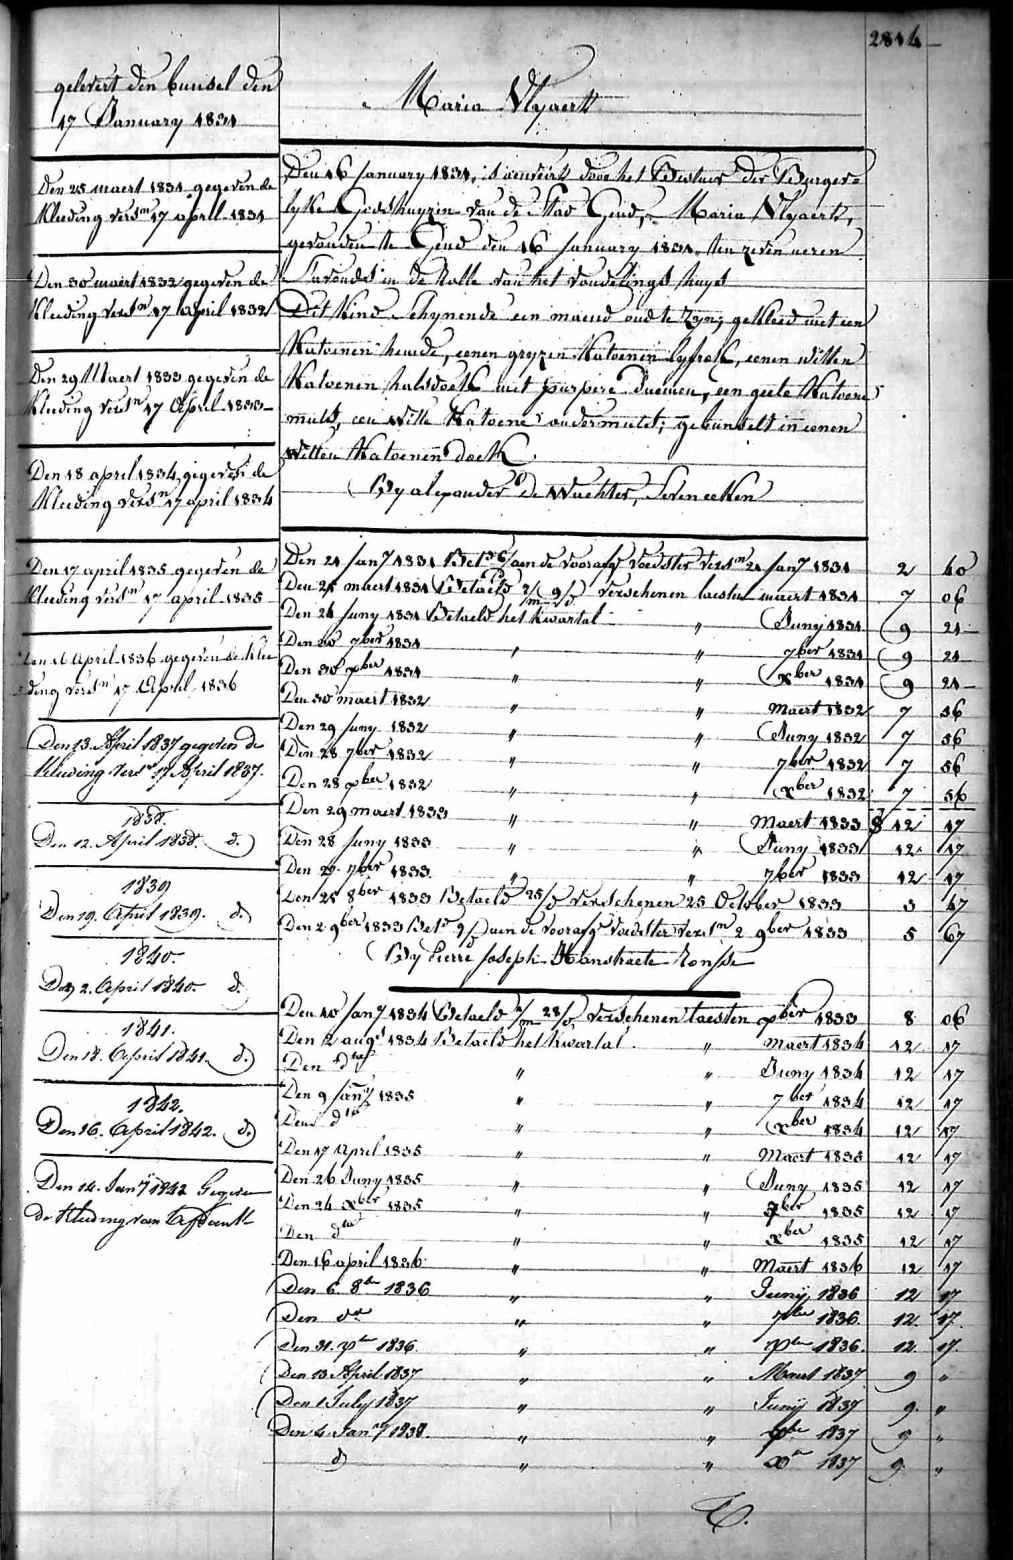 2814
gelevert den bunsel den
17 January 1831
Maria Vlyaert
Den 25 maert 1831 gegeven de
Kleeding versn 17 april 1831
Den 30 maert 1832 gegeven de
Kleeding versn 17 april 1832
Den 29 Maert 1833 gegeven de
Kleeding versn 17 April 1833
Den 18 april 1834 gegeven de
Kleeding versn 17 april 1834
Den 17 april 1835 gegeven de
Kleeding versn 17 april 1835
Den 16 April 1836 gegeven de Klee
ding versn 17 April 1836
Den 13 April 1837 gegeven de
Kleeding versn 17 April 1837.
1838.
Den 12. April 1838. d.
1839
Den 19. April 1839. d.
1840.
Den 2. April 1840. d.
1841.
Den 18. April 1841. d.
1842.
Den 16. April 1842. d.
Den 14. Jany 1843 Gegeven
de Kleeding van
Den 16 January 1831, is door het Bestuer der Burger=
lyke Godshuyzen van de Stad Gend, Maria Vlyaert,
gevonden te Gend den 16 January 1831 ten zeven ueren
s'avonds in de Rolle van het vondelings huys
Dit Kind schynende een maend oud te zyn; gekleed met een
Katoenen hemde, eenen gryzen Katoenen lyfrok, eenen witten
Katoenen halsdoek met purpere bloemen, een geele Katoene
muts, een witte Katoene ondermuts; gebunselt in eenen
witten Katoenen doek
By alexander de Wachter, Seveneeken
Den 21 Jany 1831 Betd 6/d aen de voorafge voedster versn 21 Jany 1831 2 40
Den 25 maert 1831 Betaeld 2/m 9/d verschenen laesten maert 1831 7 06
Den 24 Juny 1831 Betaeld het kwartal " Juny 1831 9 21
Den 30 7ber 1831 " " 7ber 1831 9 21
Den 30 xber 1831 " " xber 1831 9 21
Den 30 maert 1832 " " Maert 1832 7 56
Den 29 Juny 1832 " " Juny 1832 7 56
Den 28 7ber 1832 " " 7ber 1832 7 56
Den 28 xber 1832 " " xber 1832 7 56
Den 29 maert 1833 " " Maert 1833 12 17
Den 28 Juny 1833 " " Juny 1833 12 17
Den 27 7ber 1833 " " 7ber 1833 12 17
Den 25 8ber 1833 Betaeld 25/d verschenen 25 October 1833 3 47
Den 2 9ber 1833 Betd 9/d aen de voorafge voedster versn 2 9ber 1833 5 67
By Pierre Joseph Hanstraete Ronsse
Den 10 Jany 1834 Betaeld 1/m 28/d verschenen laesten xber 1833 8 06
Den 12 augt 1834 Betaeld het kwartal " Maert 1834 12 17
Den dto " " Juny 1834 12 17
Den 9 Jany 1835 " " 7ber 1834 12 17
Den dto " " xber 1834 12 17
Den 17 April 1835 " " Maert 1835 12 17
Den 26 Juny 1835 " " Juny 1835 12 17
Den 24 xber 1835 " " 7ber 1835 12 17
Den dto " " xber 1835 12 17
Den 16 april 1836 " " Maert 1836 12 17
Den 6 8br 1836 " " Junij 1836 12 17
Den do " " 7ber 1836 12 17
Den 31 xbr 1836. " " xber 1836. 12 17
Den 13 April 1837 " " Maert 1837 9 "
Den 1 July 1837 " " Junij 1837 9 "
Den 4 Jany 1838. " " 7ber 1837 9 "
d " " xbr 1837 9 "